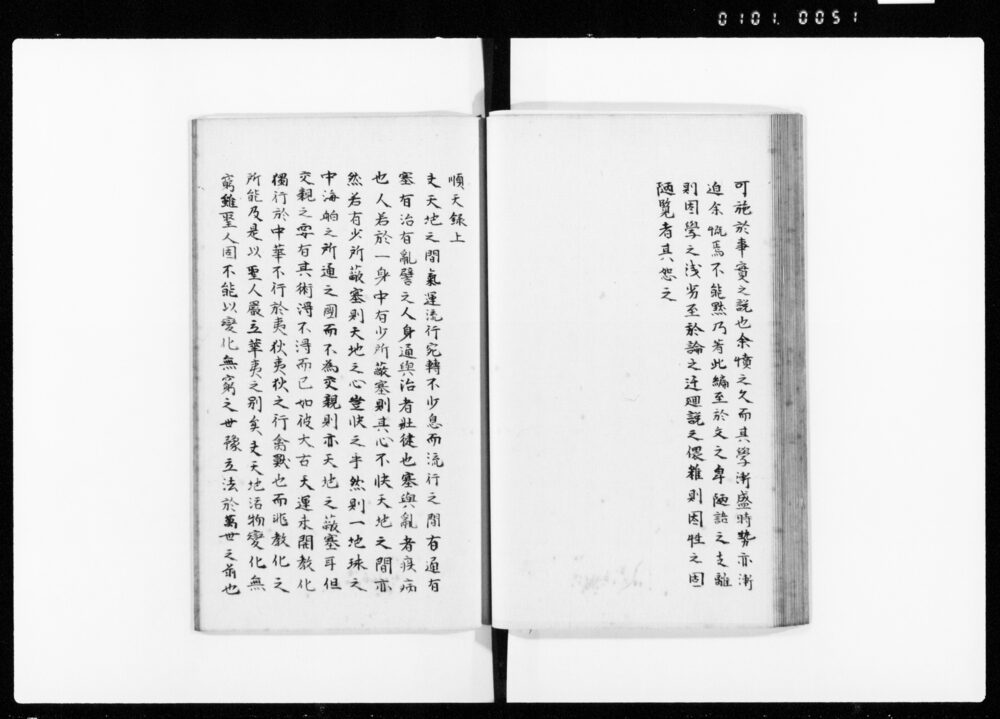 0101.0051
可施於事實之説也余憤之久而其學漸盛時勢亦漸
迫余慨焉不能黙乃著此編至於文之卑陋語之支離
則因學之浅劣至於論之迂廻説之偎雜則因性之固
陋覧者其恕之
順天録上
夫天地之間氣運流行宛轉不少息而流行之間有通有
塞有治有亂譬之人身通與治者壯健也塞與亂者疾病
也人若於一身中有少所蔽塞則其心不快天地之間亦
然若有少所蔽塞則天地之心豈快之乎然則一地球之
中海舶之所通之國而不為交親則亦天地之蔽塞耳但
交親之要有其術得不得而已如彼太古天運未開教化
獨行於中華不行於夷狄夷狄之行禽獸也而非教化之
所能及是以聖人嚴立華夷之別矣夫天地活物變化無
窮雖聖人固不能以變化無窮之世豫立法於萬世之前也